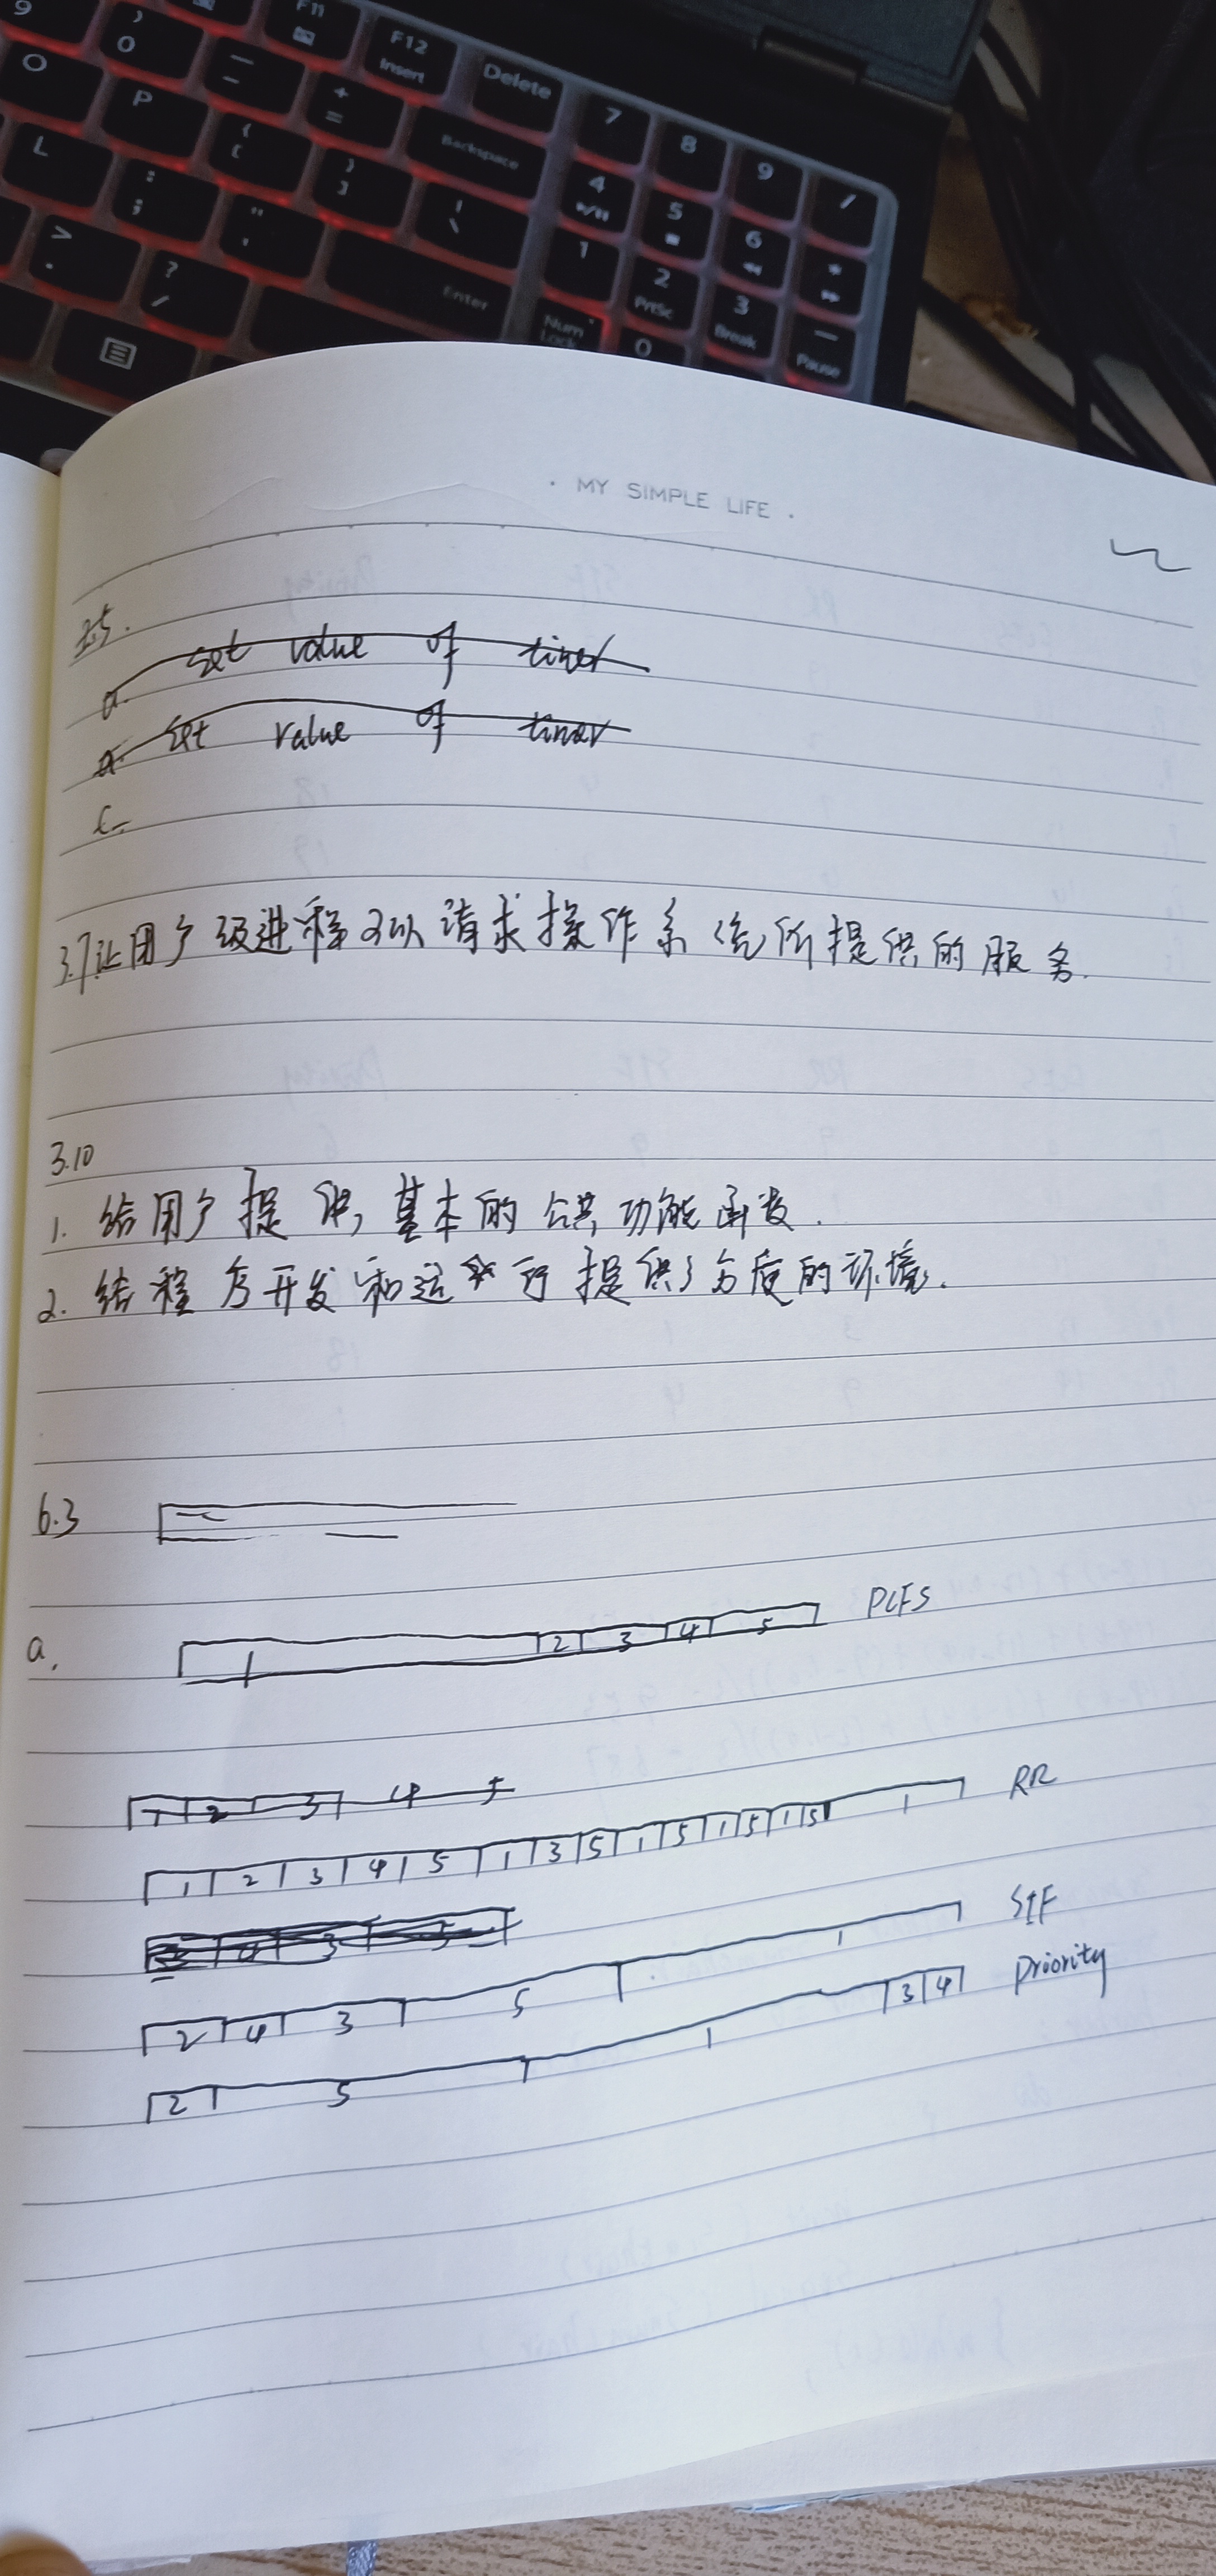 9 ) 0 — – F11 F12 Insert Delete 7 8 9 /
O P { [ + = Backspace 4 5 6 *
L : ; " ' } ] | \ 1 2 PrtSc 3 Break — Pause
> . ? / Enter Num Lock 0
· MY SIMPLE LIFE ·
2.5.
a. set value of timer
a. set value of timer
c.
3.7 让用户级进程可以请求操作系统所提供的服务.
3.10
1. 给用户提供基本的公共功能函数.
2. 给程序开发和运行提供了方便的环境.
6.3
a. 1 2 3 4 5 PCFS
1 2 3 4 5
1 2 3 4 5 1 3 5 1 5 1 5 1 5 1 RR
3
2 4 3 5 1 SJF
2 5 1 3 4 Priority